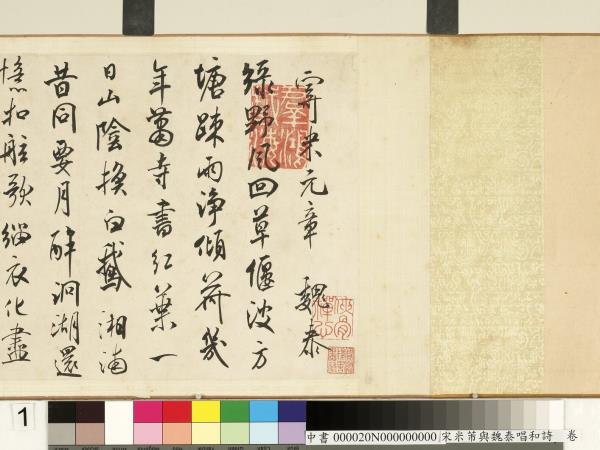 寄米元章 魏泰
綠野風回草偃波方
塘踈雨淨傾荷幾
年蕭寺書紅葉一
日山陰換白鵝湘浦
昔同要月醉洞湖還
憶扣舷歌緇衣化盡
1
中書 000020N000000000 宋米芾與魏泰唱和詩 卷